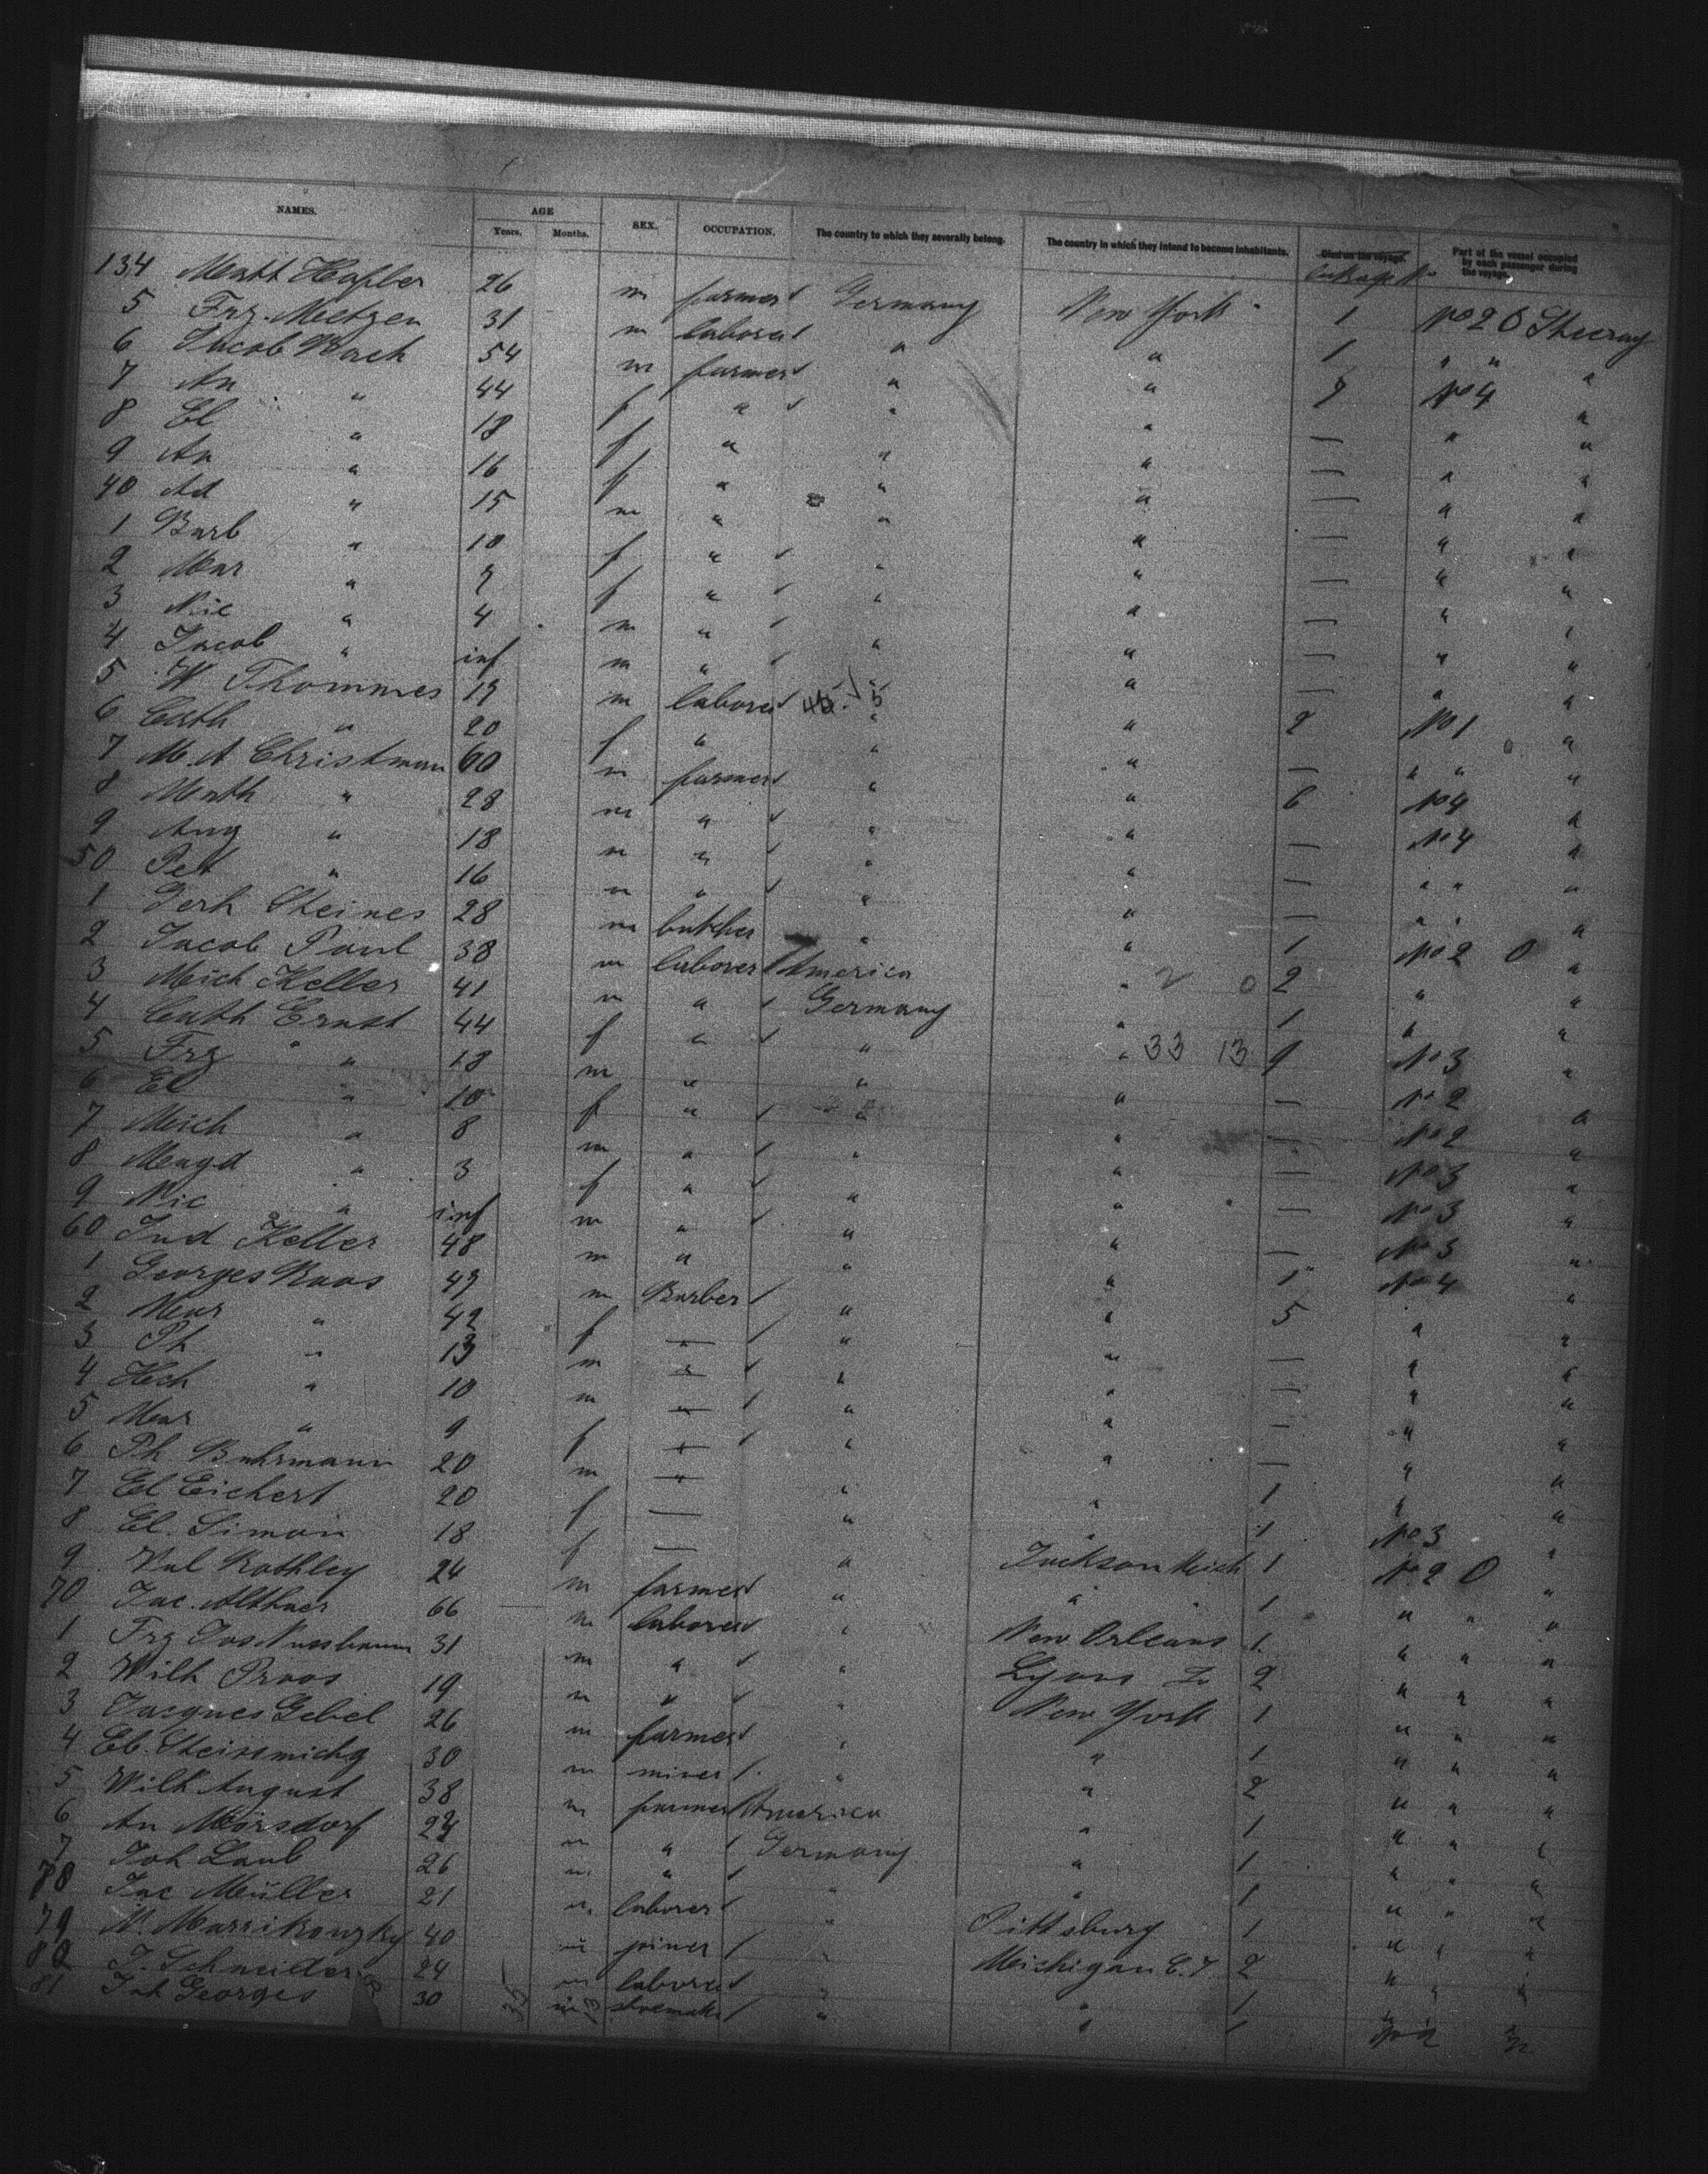 NAMES. AGE Years. Months. SEX. OCCUPATION. The country to which they severally belong. The country in which they intend to become inhabitants. Died on the voyage. Part of the vessel occupied by each passenger during the voyage.
134 Matt 26 m farmer Germany New York 1 No 2 O Steerag
5 Frz. Metzen 31 m laborer " " 1 " " "
6 Jacob Bach 54 m farmer " " 9 No 4 "
7 An " 44 f " " " — " "
8 El " 18 f " " " — " "
9 An " 16 f " " " — " "
40 Ad " 15 m " " " — " "
1 Barb " 10 f " " " — " "
2 Mar " 9 f " " " — " "
3 Nic " 4 m " " " — " "
4 Jacob " inf m " " " — " "
5 W Thommes 19 m laborer " " 2 No 1 "
6 Cath " 20 f " " " — " " "
7 M. A Christman 60 m farmer " " 6 No 4 "
8 Math " 28 m " " " — No 4 "
9 Aug " 18 m " " " — " " "
50 Pet " 16 m " " " — " " "
1 Gerh Steines 28 m butcher " " 1 No 2 O "
2 Jacob Paul 38 m laborer America " 2 " "
3 Mich Keller 41 m " Germany " 1 " "
4 Cath Ernst 44 f " " " 33 13 9 No 3 "
5 Frz " 18 m " " " — No 2 "
6 El " 10 f " " " — No 2 "
7 Mich " 8 m " " " — No 3 "
8 Magd " 3 f " " " — No 3 "
9 Nic " inf m " " " — No 3 "
60 Jnd Keller 48 m " " " 1 No 4 "
1 Georges Baas 49 m Barber " " 5 " "
2 Mar " 42 f — " " — " "
3 Ph " 13 m — " " — " "
4 Hch " 10 m — " " — " "
5 Mar " 9 f — " " — " "
6 Ph. Buhrmann 20 m — " " 1 " "
7 El Eichert 20 f — " " 1 No 3 "
8 El. Simon 18 f — " Jackson Mich 1 No 2 O "
9 Val Rothley 24 m farmer " " 1 " " "
70 Jac. Althaer 66 m laborer " New Orleans 1 " " "
1 Frz Jos Nussbaum 31 m " " Lyons 2 " " "
2 Wilh Praas 19 m " " New York 1 " " "
3 Jacques Gebel 26 m farmer " " 1 " " "
4 Eb. 30 m miner " " 2 " " "
5 Wilh August 38 m farmer America " 1 " " "
6 An Mörsdorf 24 m " Germany " 1 " " "
7 Joh Laub 26 m " " " 1 " " "
78 Jac Müller 21 m laborer " Pittsburg 1 " " "
79 N. 40 m joiner " Michigan C.T. 2 " " "
80 J. Schneider 24 m laborer " " 1 " " "
81 Joh Georges 30 m shoemaker " " 1 No 2 "